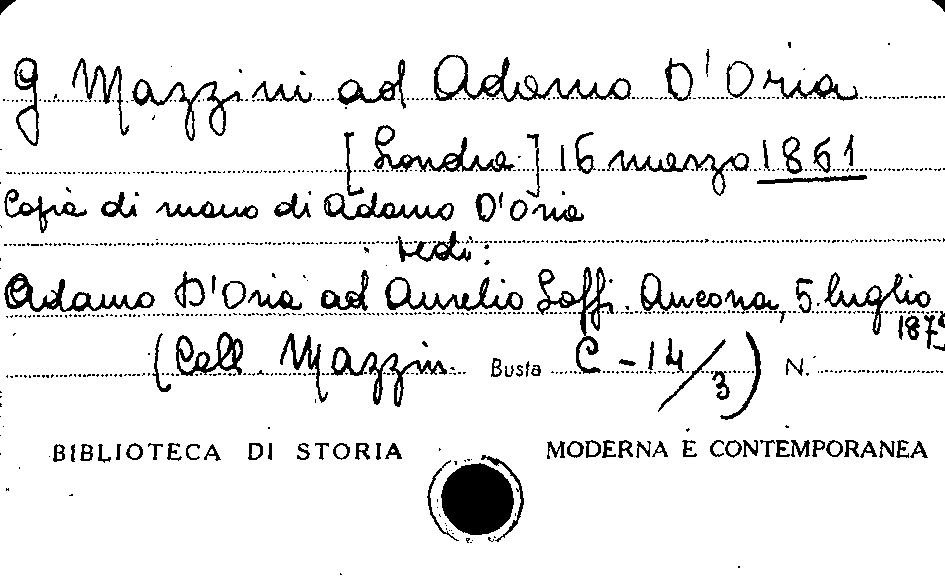 G. Mazzini ad Adamo D'Oria
[Londra] 16 marzo 1861
Copia di mano di Adamo D'Oria
vedi:
Adamo D'Oria ad Aurelio Saffi. Ancona, 5 luglio
(Coll. Mazzin. Busta C - 14/3) N.
BIBLIOTECA DI STORIA MODERNA E CONTEMPORANEA